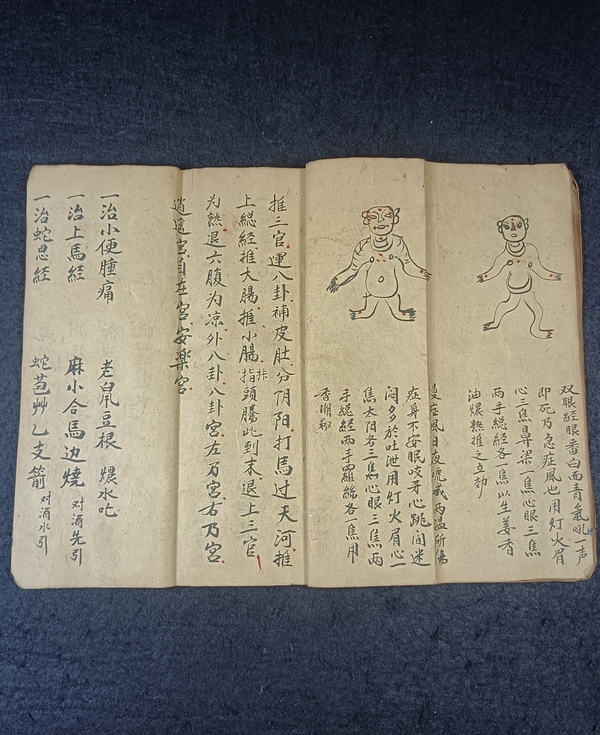 双眼経眼番白面青氣吼一声
即死乃急症風也用灯火眉
心三焦鼻梁一焦心眼三焦
两手総経各一焦以生姜香
油煨熱推之立効
慢症風日夜虎或两温所傷
症身不安眠咬牙心跳间迷
闷多於吐泄用灯火眉心一
焦太阳各三焦心眼三焦两
手総経两手羅絲各一焦用
香潮粉
推三官運八卦補皮肚分阴阳打馬过天河推
上総経推大腸推小腸指頭騰此到末退上三官
为熱退六腹为凉外八卦八卦宮左万宮右乃宮
逍遥宮自在宮安楽宮
一治小便腫痛 老鼠豆根 煨水吃
一治上馬経 麻小合馬边燒 对酒先引
一治蛇思経 蛇苞艸乙支箭 对酒水引